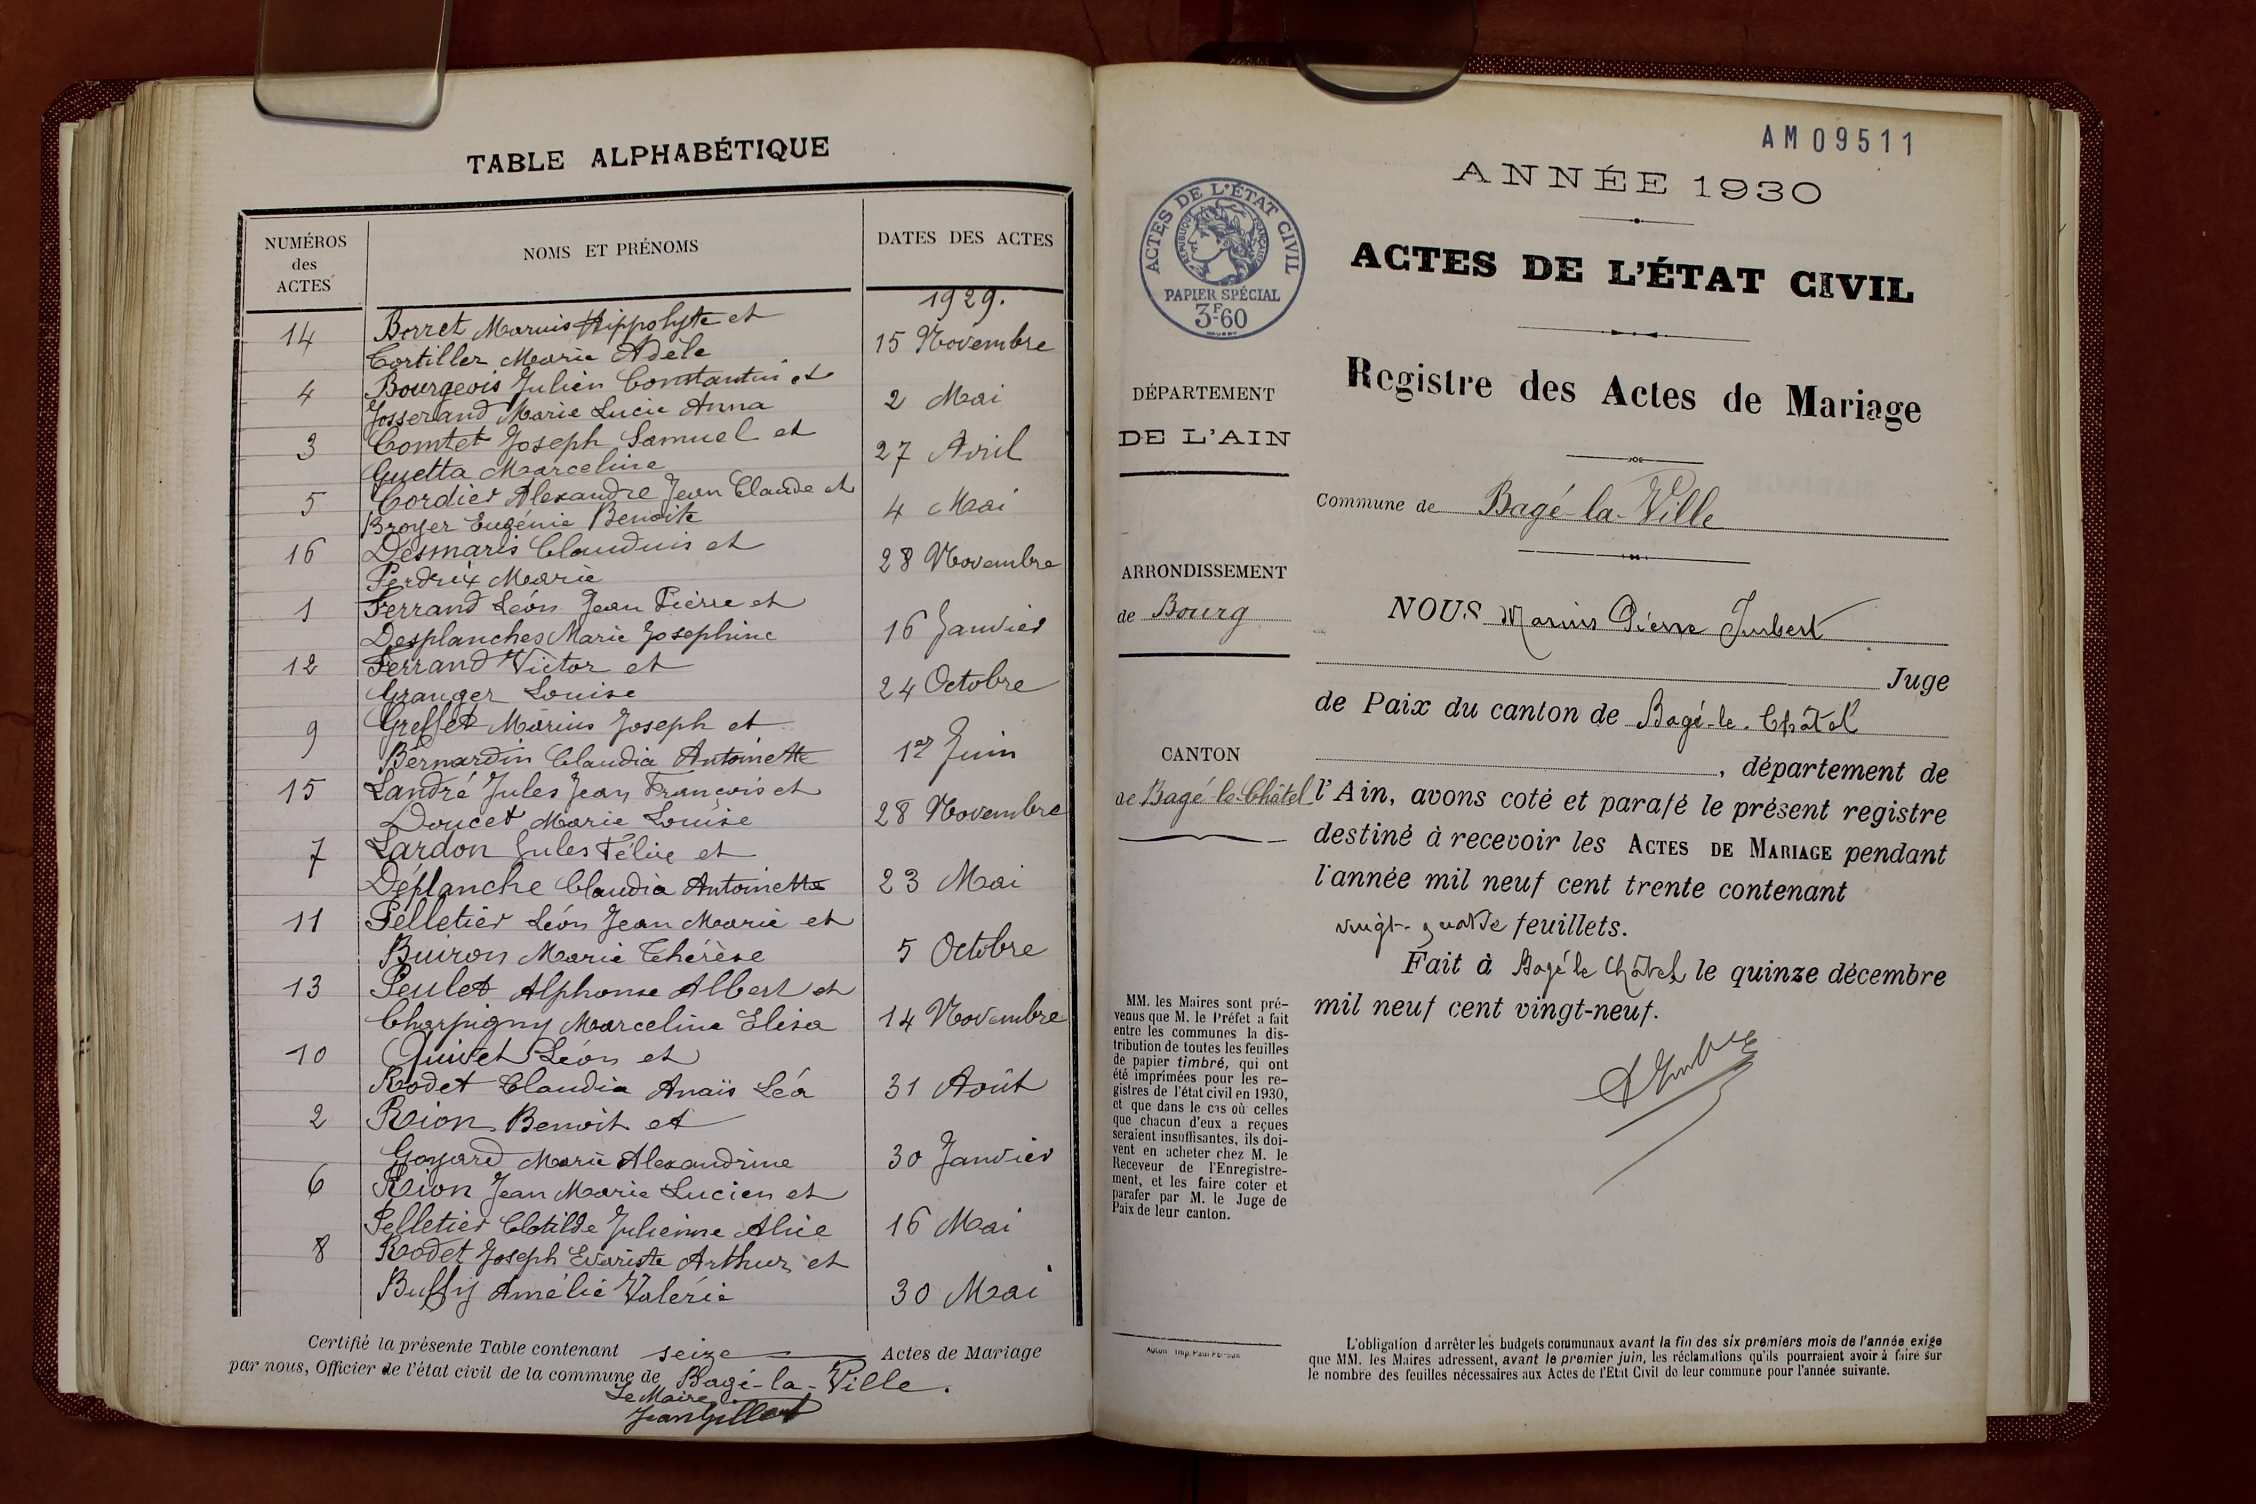 TABLE ALPHABÉTIQUE
NUMÉROS
des
ACTES
NOMS ET PRÉNOMS
DATES DES ACTES
1929.
14 Borret Marius Hippolyte et
Cortiller Marie Adèle 15 Novembre
4 Bourgeois Julien Constantin et
Josserand Marie Lucie Anna 2 Mai
3 Comtet Joseph Samuel et
Guetta Marceline 27 Avril
5 Cordier Alexandre Jean Claude et
Broyer Eugénie Benoite 4 Mai
16 Desmaris Claudius et
Perdrix Marie 28 Novembre
1 Ferrand Léon Jean Pierre et
Desplanches Marie Josephine 16 Janvier
12 Ferrand Victor et
Granger Louise 24 Octobre
9 Greffet Marius Joseph et
Bernardin Claudia Antoinette 1er Juin
15 Landré Jules Jean François et
Doucet Marie Louise 28 Novembre
7 Lardon Jules Félix et
Déplanche Claudia Antoinette 23 Mai
11 Pelletier Léon Jean Marie et
Buiron Marie Thérèse 5 Octobre
13 Peulet Alphonse Albert et
Charpigny Marceline Elisa 14 Novembre
10 Quivet Léon et
Rodet Claudia Anaïs Léa 31 Août
2 Rion Benoit et
Goyard Marie Alexandrine 30 Janvier
6 Rion Jean Marie Lucien et
Pelletier Clotilde Julienne Alice 16 Mai
8 Rodet Joseph Evariste Arthur et
Buffy Amélie Valérie 30 Mai
Certifié la présente Table contenant seize Actes de Mariage
par nous, Officier de l'état civil de la commune de Bagé-la-Ville.
Le Maire
AM09511
ANNÉE 1930
ACTES DE L'ÉTAT CIVIL
RÉPUBLIQUE FRANÇAISE
PAPIER SPÉCIAL
3F-60
ACTES DE L'ÉTAT CIVIL
Registre des Actes de Mariage
DÉPARTEMENT
DE L'AIN
Commune de Bagé-la-Ville
ARRONDISSEMENT
de Bourg
NOUS Marius Pierre Imbert
Juge
de Paix du canton de Bagé-le-Châtel
CANTON
de Bagé-le-Châtel
, département de
l'Ain, avons coté et parafé le présent registre
destiné à recevoir les ACTES DE MARIAGE pendant
l'année mil neuf cent trente contenant
vingt-quatre feuillets.
Fait à Bagé le Châtel le quinze décembre
mil neuf cent vingt-neuf.
MM. les Maires sont pré-
venus que M. le Préfet a fait
entre les communes la dis-
tribution de toutes les feuilles
de papier timbré, qui ont
été imprimées pour les re-
gistres de l'état civil en 1930,
et que dans le cas où celles
que chacun d'eux a reçues
seraient insuffisantes, ils doi-
vent en acheter chez M. le
Receveur de l'Enregistre-
ment, et les faire coter et
parafer par M. le Juge de
Paix de leur canton.
L'obligation d'arrêter les budgets communaux avant la fin des six premiers mois de l'année exige
que MM. les Maires adressent, avant le premier juin, les réclamations qu'ils pourraient avoir à faire sur
le nombre des feuilles nécessaires aux Actes de l'Etat Civil de leur commune pour l'année suivante.